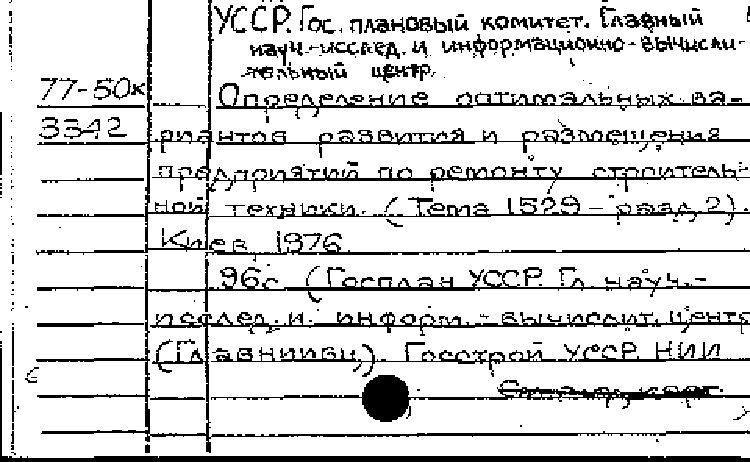 УССР. Гос. плановый комитет. Главный
науч.-исслед. и информационно-вычисли-
тельный центр.
77-50к Определение оптимальных ва-
3342 риантов развития и размещения
предприятий по ремонту строитель-
ной техники. (Тема 1529 - разд. 2).
Киев, 1976.
96с. (Госплан УССР. Гл. науч.-
исслед. и информ.-вычислит. центр
(Главниивц). Госстрой УССР. НИИ